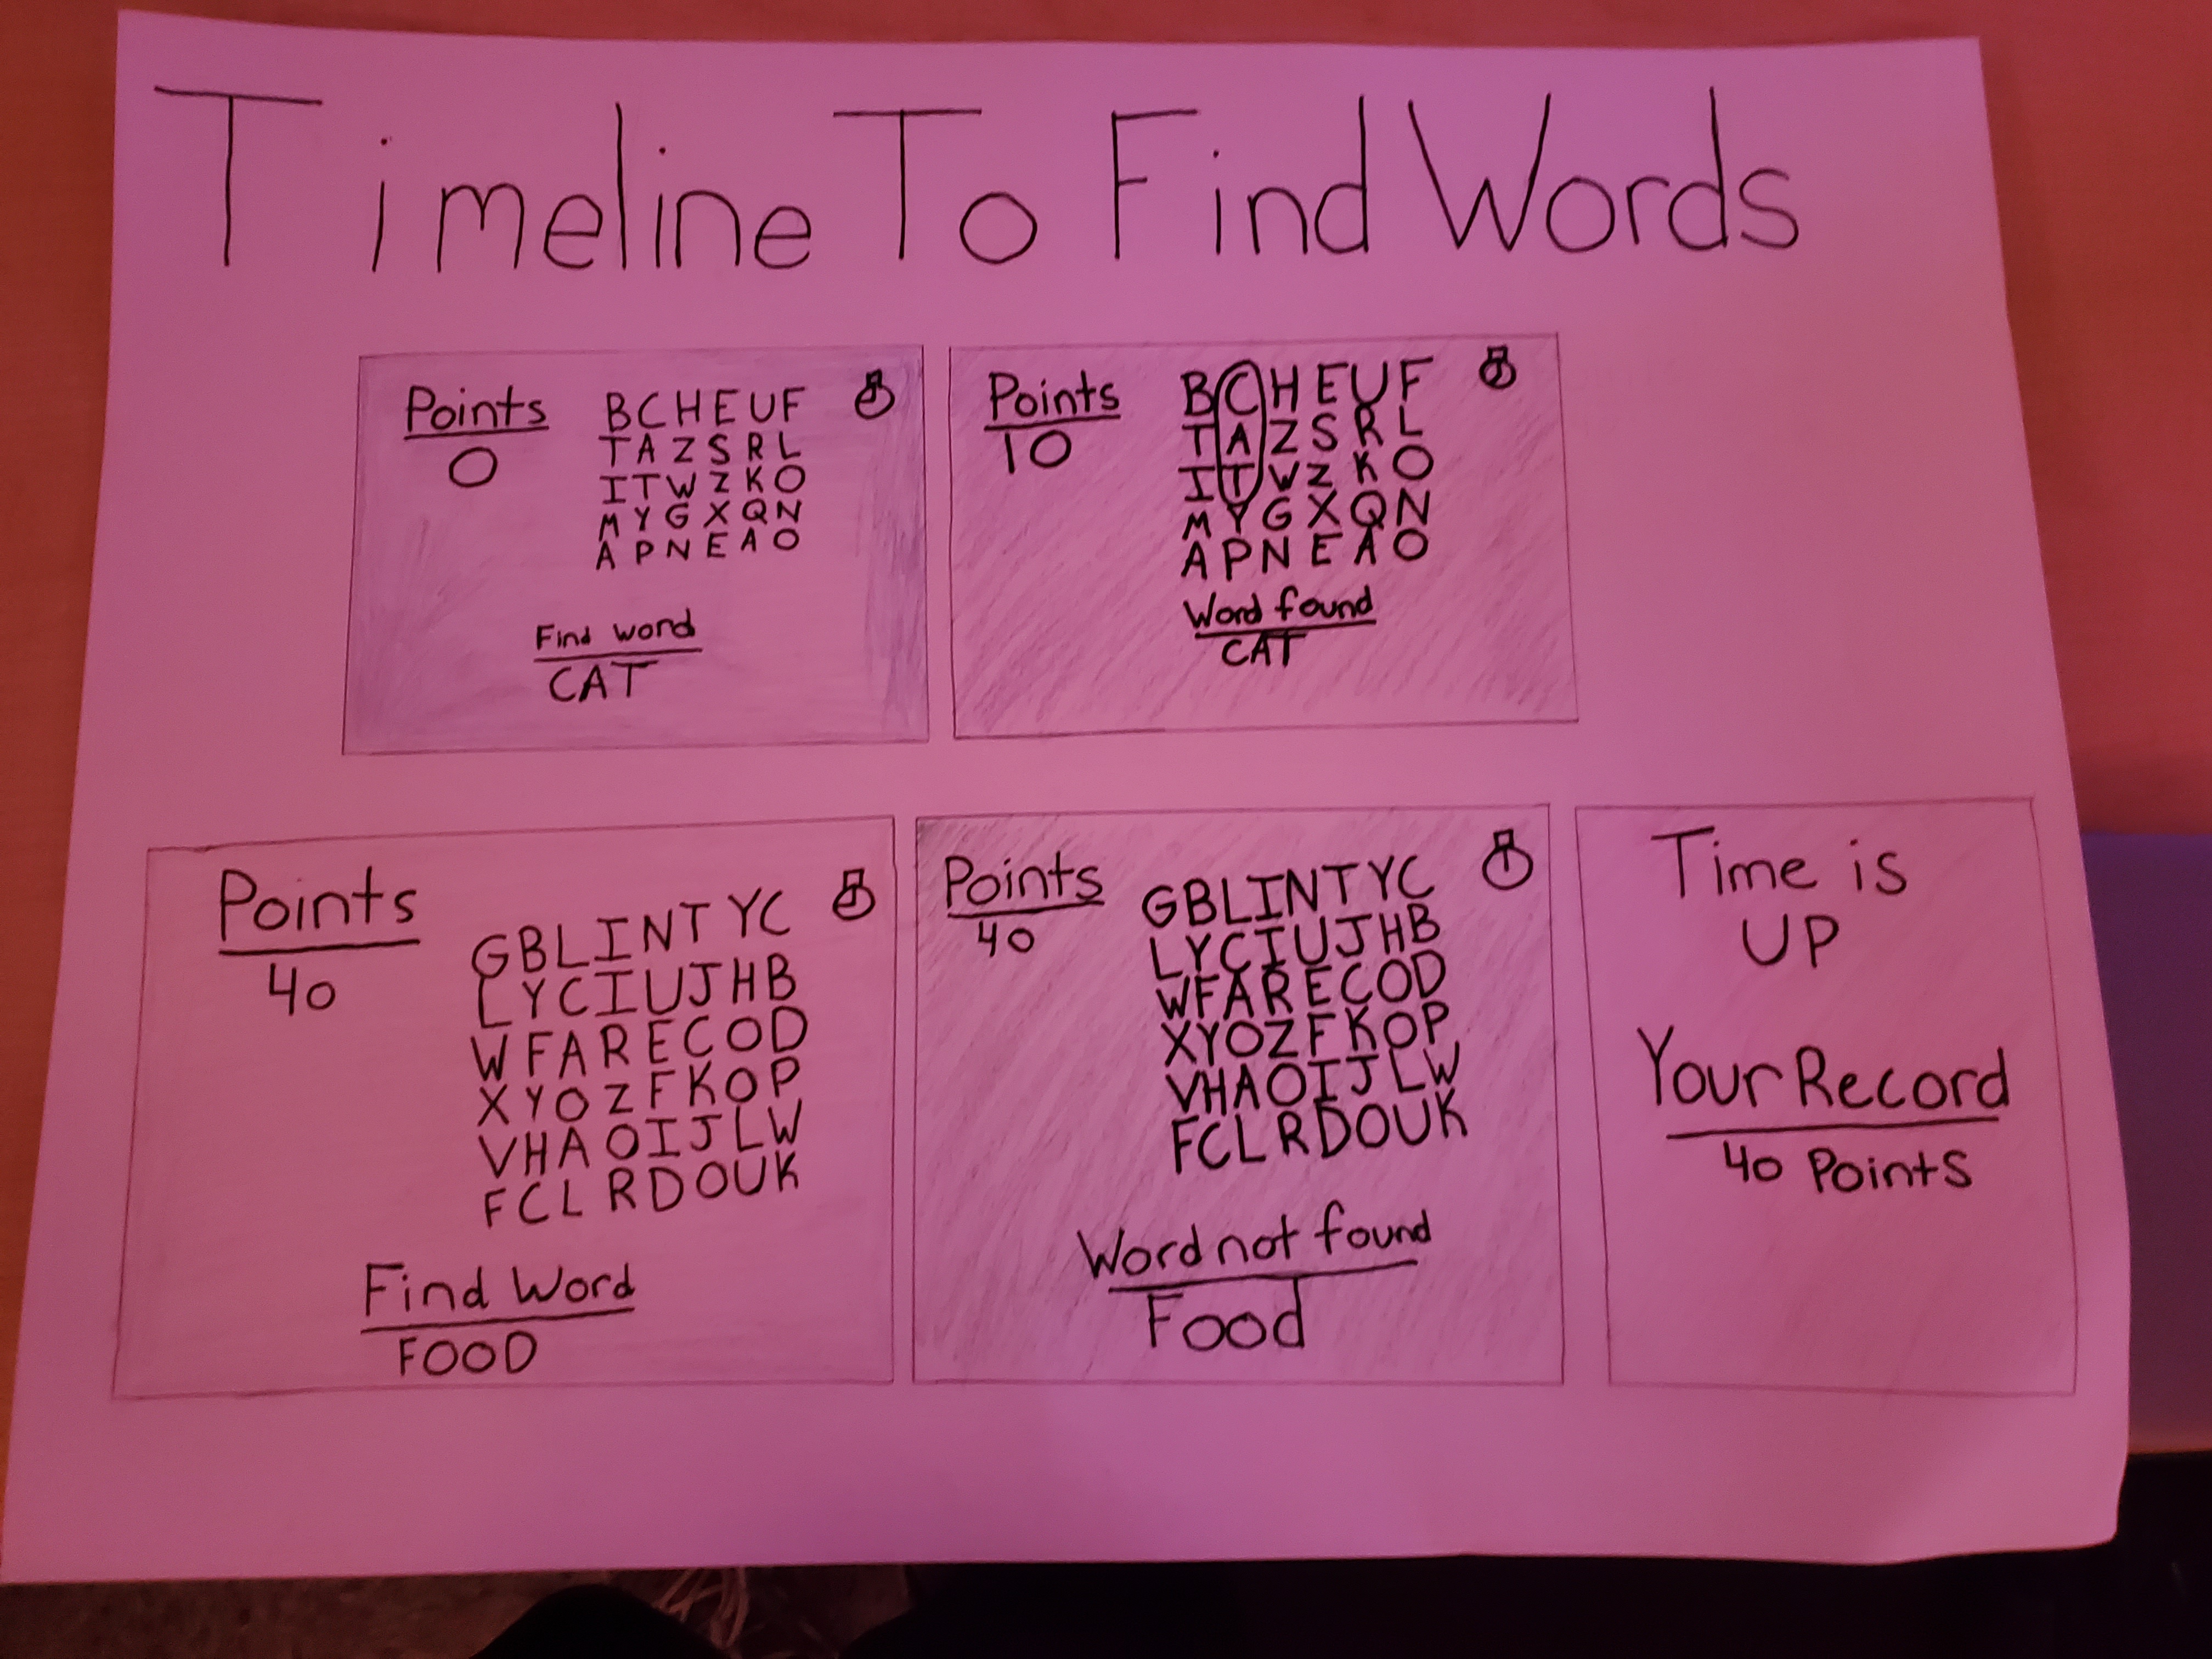 Timeline To Find Words
Points
0
BCHEUF
TAZSRL
ITWZKO
MYGXQN
APNEAO
Find word
CAT
Points
10
BCHEUF
TAZSRL
ITWZKO
MYGXQN
APNEAO
Word found
CAT
Points
40
GBLINTYC
LYCIUJHB
WFARECOD
XYOZFKOP
VHAOIJLW
FCLRDOUK
Find Word
FOOD
Points
40
GBLINTYC
LYCIUJHB
WFARECOD
XYOZFKOP
VHAOIJLW
FCLRDOUK
Word not found
Food
Time is
UP
Your Record
40 Points